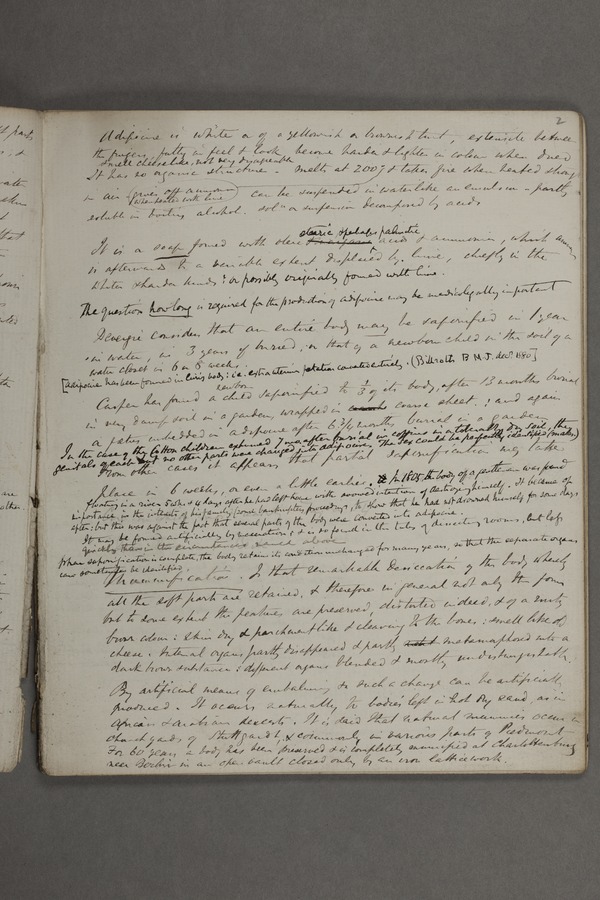 2
Adipocire is white or of a yellowish or brownish tint, extensile between
the fingers, putty in feel & look, become harder & lighter in colour when dried
smell cheeselike, not very disagreeable
It has no organic structure. melts at 200°F & takes fire when heated strongly
in air (gives off ammonia when heated with lime) can be suspended in water like an emulsion - partly
soluble in boiling alcohol. solⁿ or suspension decomposed by acids
It is a soap formed with oleic stearic & palmitic acid & ammonia, which ammonia
is afterwards to a variable extent displaced by lime, chiefly in the
whiter & harder kinds: or possibly originally formed with lime.
The question how long is required for the production of adipocire may be medicolegally important
Devergie considers that an entire body may be saponified in 1 year
in water, in 3 years if buried; or that of a newborn child in the soil of a
water closet in 6 or 8 weeks.
[adipocire has been formed in living body: i.e. (Billroth B.M.J. Dec. 1880]
Casper has found a child saponified to ⅓ of its body, after 13 months burial
in very damp soil in a garden, wrapped in coarse sheet: and again
a foetus imbedded in adipocire after 6¾ months burial in a garden
In the case of the Cotton children exhumed after burial in coffins in a tolerably dry soil, the
genitals of each but no other parts were changed into adipocire. The sex could be perfectly identified (males)
From other cases it appears that partial saponification may take
place in 6 weeks, or even a little earlier. In 1805 the body of a gentleman was found
floating in a river 5 wks & 4 days after he had left home with avowed intention of destroying himself. It became of
importance in the interests of his family (some bankruptcy proceedings) to show that he had not drowned himself for some days
after: but this was against the fact that several parts of the body were converted into adipocire.
It may be formed artificially by maceration; & is so found in the tubs of dissecting rooms, but less
quickly than in the circumstances named above
When saponification is complete, the body retains its condition unchanged for many years, so that the separate organs
can sometimes be identified.
Mummification. Is that remarkable desiccation of the body whereby
all the soft parts are retained, & therefore in general not only the form
but to some extent the features are preserved, distorted indeed, & of a dusty
brown colour: skin dry & parchmentlike & cleaving to the bones: smell like old
cheese. Internal organs partly disappeared & partly metamorphosed into a
dark brown substance: different organs blended & mostly undistinguishable.
By artificial means of embalming &c such a change can be artificially
produced. It occurs naturally to bodies left in hot dry sand, as in
African & Arabian deserts. It is said that natural mummies occur in
churchyards of Stuttgardt, & commonly in various parts of Piedmont
For 60 years a body has been preserved & is completely mummified at Charlottenburg
near Berlin in an open vault closed only by an iron latticework.